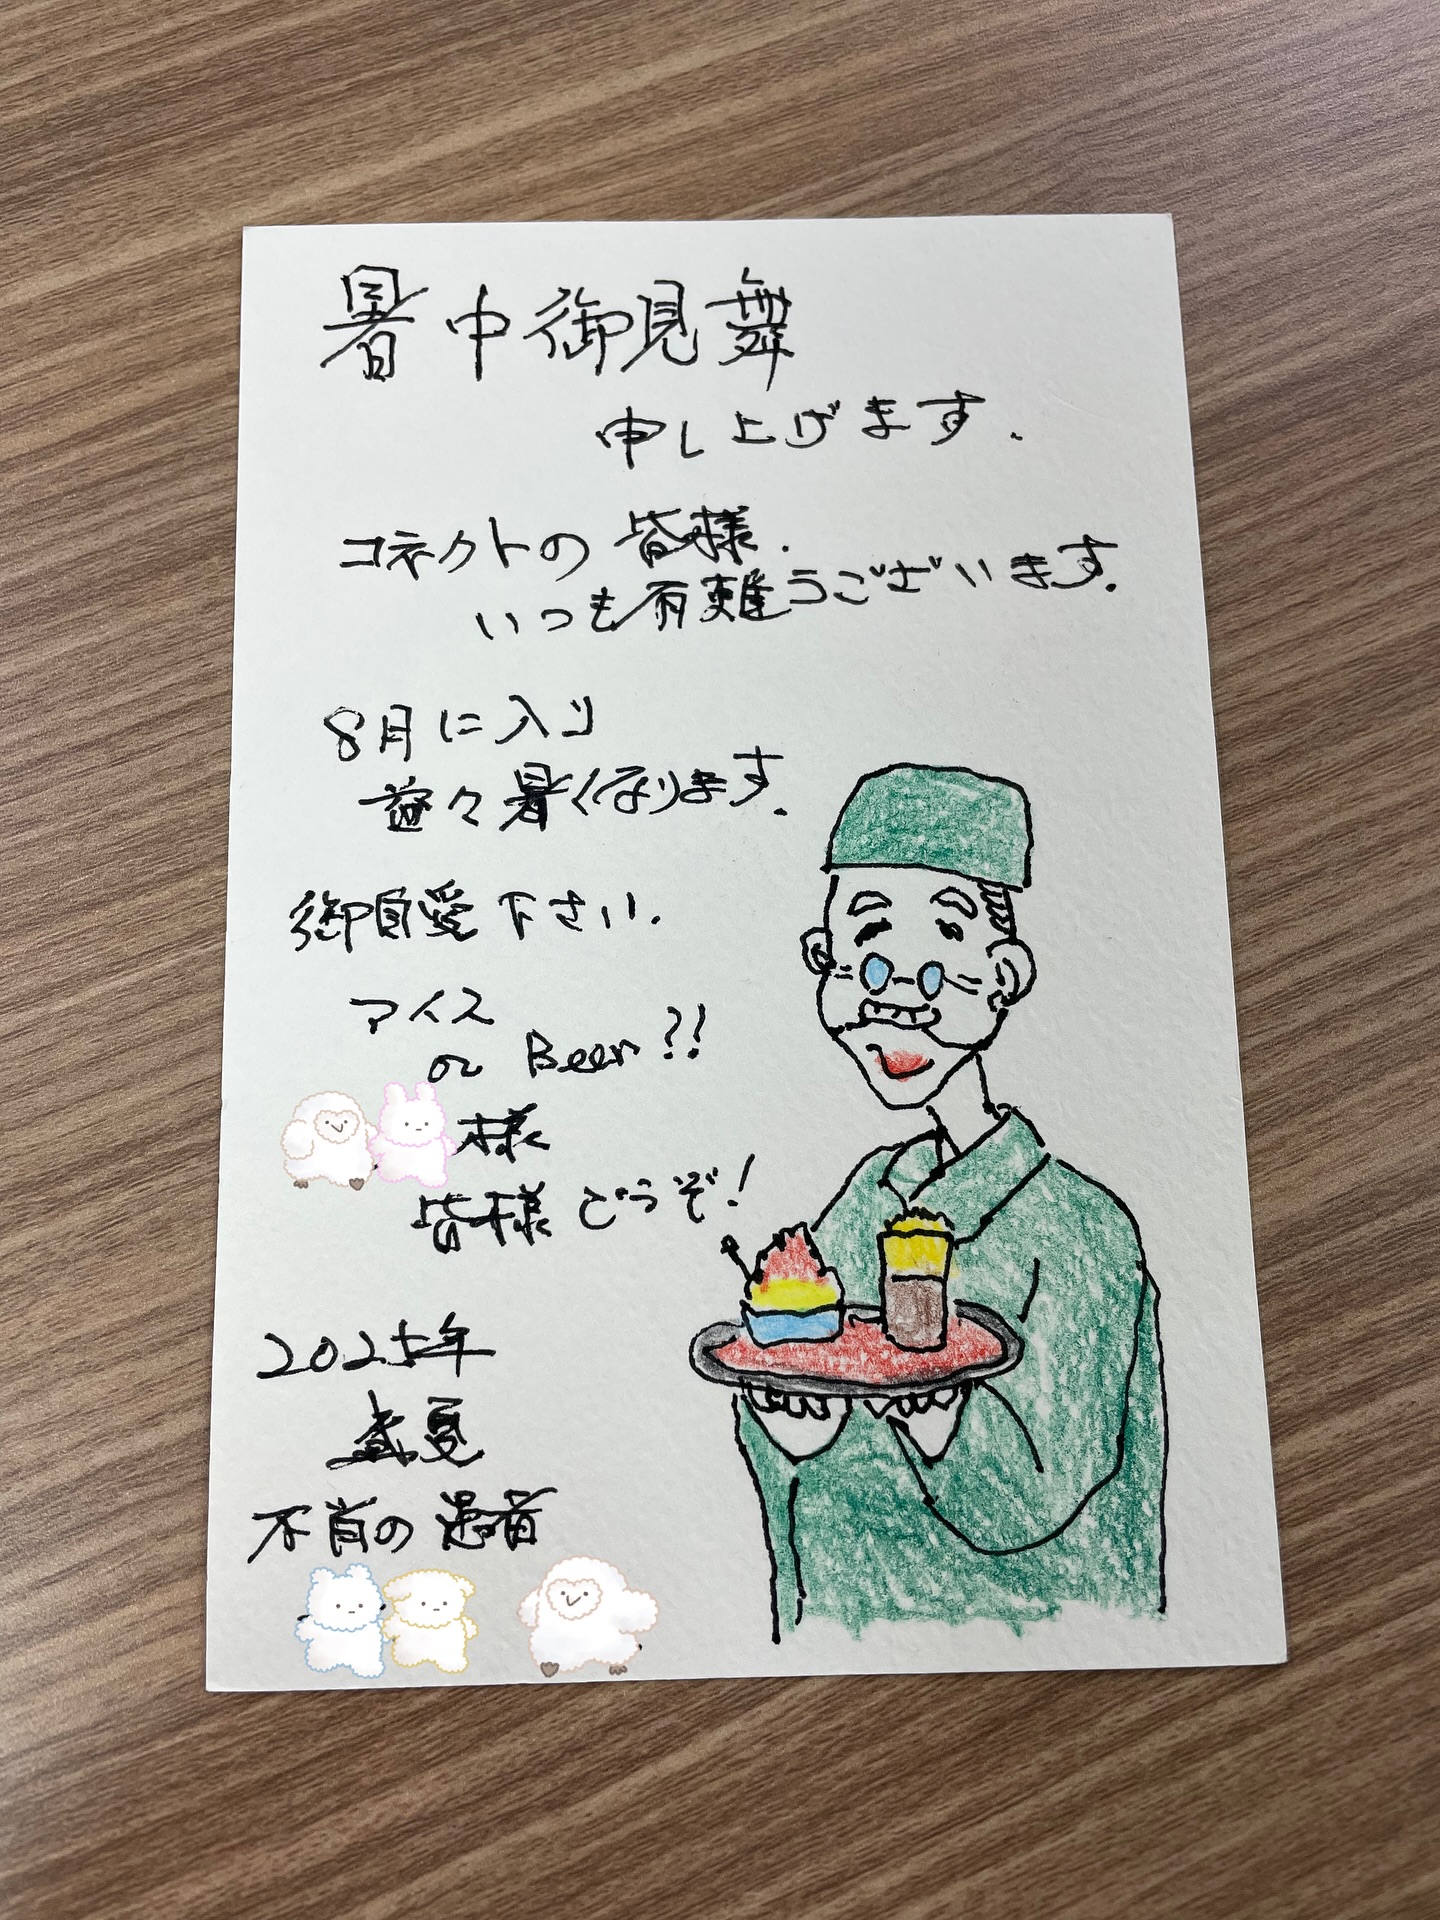 暑中御見舞
申し上げます.
コネクトの皆様.
いつも有難うございます.
8月に入り
益々暑くなります.
御自愛下さい.
アイス
or Beer?!
様
皆様どうぞ!
2025年
盛夏
不肖の患者